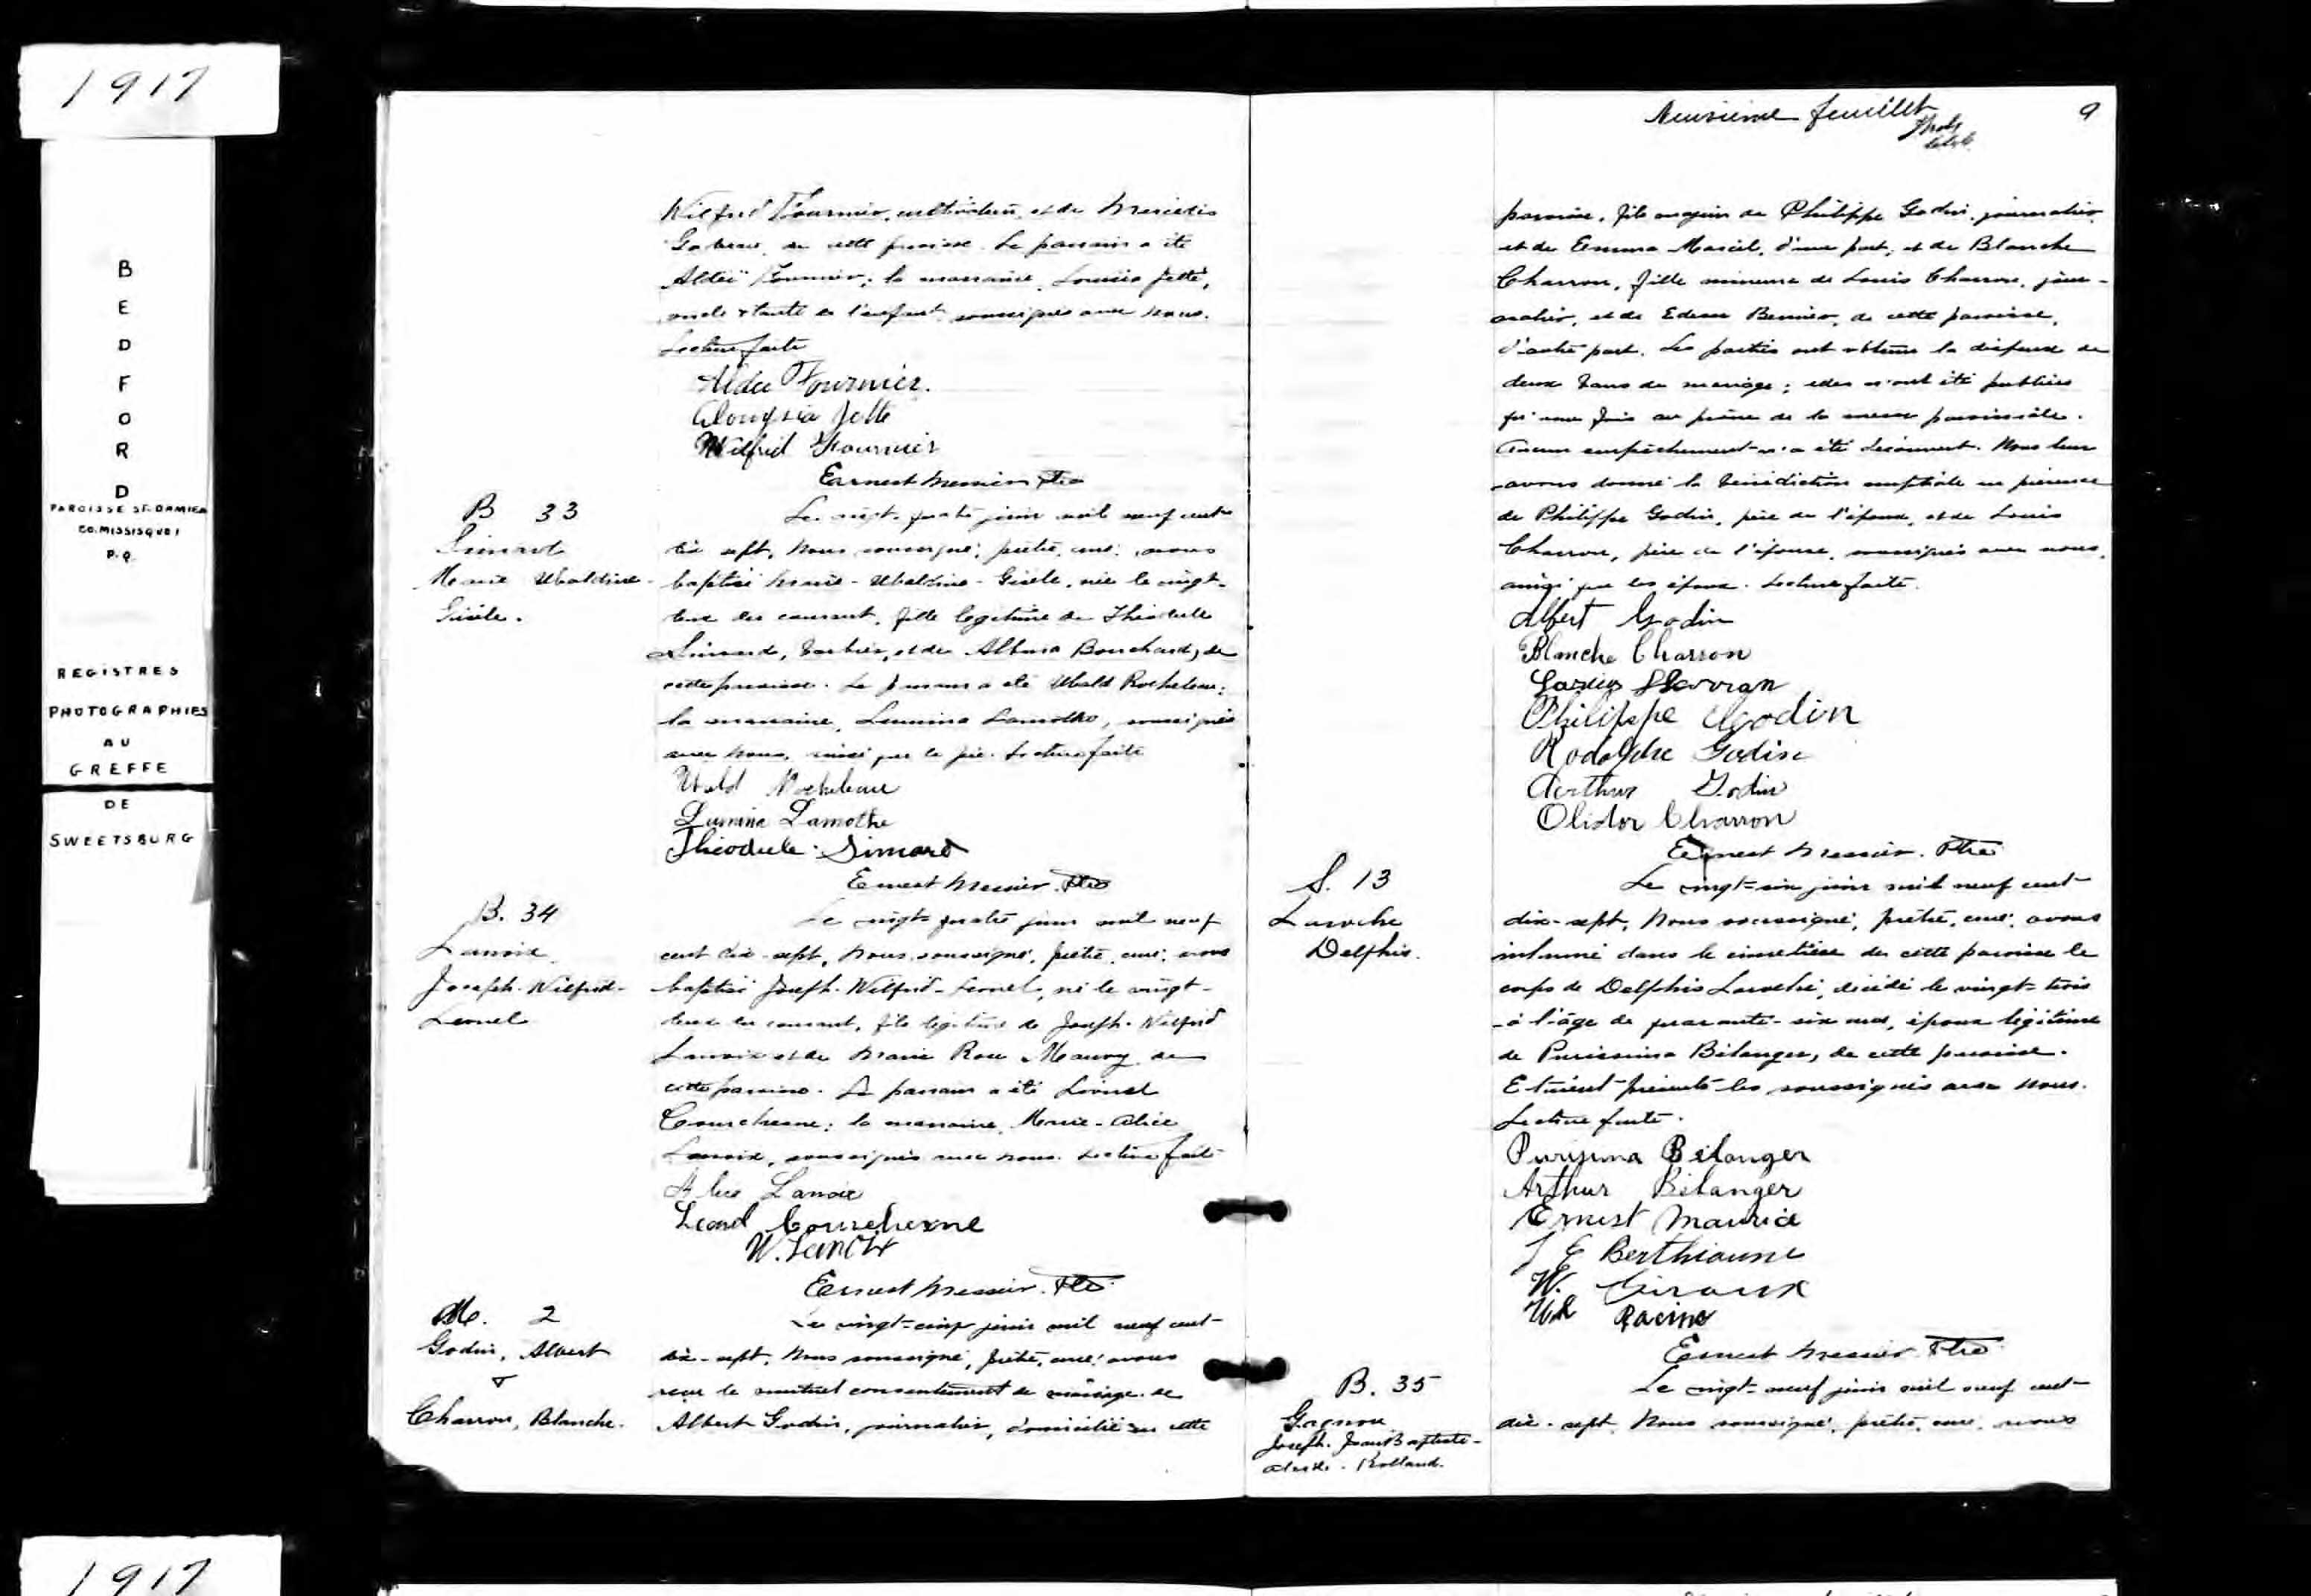 1917
B
E
D
F
O
R
D
PAROISSE ST-DAMIEN
CO. MISSISQUOI
P.Q.
REGISTRES
PHOTOGRAPHIES
AU
GREFFE
DE
SWEETSBURG
1917
Wilfrid Fournier, cultivateur, et de
de cette paroisse. Le parrain a été
Fournier; la marraine, Jetté,
oncle et tante de l'enfant, soussignés avec nous.
Lecture faite
Aldée Fournier.
Jette
Wilfrid Fournier
Ernest Messier Ptre
B 33
Simard
Marie Ubaldine-
Gisèle.
Le vingt-quatre juin mil neuf cent
dix sept, Nous soussigné, prêtre, curé, avons
baptisé Marie-Ubaldine-Gisèle, née le vingt-
deux du courant, fille légitime de Théodule
Simard, barbier, et de Albina Bouchard, de
cette paroisse. Le parrain a été Ubald Rocheleau;
la marraine, Lumina Lamothe, soussignés
avec nous, ainsi que le père. Lecture faite
Ubald Rocheleau
Lumina Lamothe
Théodule Simard
Ernest Messier. Ptre
B. 34
Lanoix
Joseph-Wilfrid-
Leonel
Le vingt-quatre juin mil neuf
cent dix-sept, Nous, soussigné, prêtre, curé, avons
baptisé Joseph-Wilfrid-Leonel, né le vingt-
deux du courant, fils légitime de Joseph-Wilfrid
Lanoix et de Marie Rose de
cette paroisse. Le parrain a été Lionel
Courchesne; la marraine, Marie-Alice
Lanoix, soussignés avec nous. Lecture faite
Alice Lanoix
Leonel Courchesne
W. Lanoix
Ernest Messier. Ptre
M. 2
Godin, Albert
&
Charron, Blanche.
Le vingt-cinq juin mil neuf cent-
dix-sept, Nous soussigné, prêtre, curé, avons
reçu le mutuel consentement de mariage de
Albert Godin, journalier, domicilié en cette
Neuvième feuillet
9
paroisse, fils majeur de Philippe Godin, journalier
et de Emma Marcil, d'une part, et de Blanche
Charron, fille mineure de Louis Charron, jour-
nalier, et de Bernier, de cette paroisse,
d'autre part. Les parties ont obtenu la dispense de
deux bans de mariage; elles n'ont été publiées
qu'une fois au prône de la messe paroissiale.
Aucun empêchement n'a été découvert. Nous leur
avons donné la bénédiction nuptiale en présence
de Philippe Godin, père de l'époux, et de Louis
Charron, père de l'épouse, soussignés avec nous,
ainsi que les époux. Lecture faite.
Albert Godin
Blanche Charron
Philippe Godin
Rodolphe Godin
Arthur Godin
Charron
Ernest Messier. Ptre
S. 13
Laroche
Delphis.
Le vingt-six juin mil neuf cent-
dix-sept, Nous soussigné, prêtre, curé, avons
inhumé dans le cimetière de cette paroisse le
corps de Delphis Laroche, décédé le vingt-trois
à l'âge de quarante-six ans, époux légitime
de Purissima Bélanger, de cette paroisse.
Etaient présents les soussignés avec nous.
Lecture faite.
Purissima Bélanger
Arthur Bélanger
Ernest Maurice
J E Berthiaume
W. Giroux
Racine
Ernest Messier Ptre
B. 35
Gagnon
Joseph-Jean Baptiste-
Rolland.
Le vingt-neuf juin mil neuf cent-
dix-sept, Nous soussigné, prêtre, curé, avons